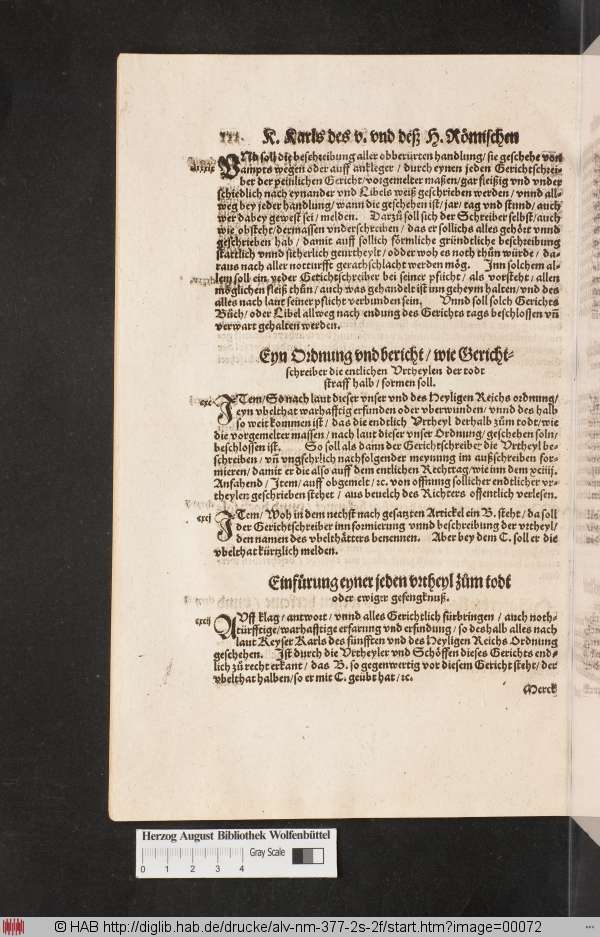 K. Karls des v. vnd deß H. Römischen
VNd soll die beschreibung aller obberürten handlung / sie geschehe von
ampts wegen oder auff ankleger / durch eynen jeden Gerichtschrei-
ber der peinlichen Gericht / vorgemelter maßen / gar fleißig vnd vnder
schiedlich nach eynander vnd Libels weiß geschrieben werden / vnnd all-
weg bey jeder handlung / wann die geschehen ist / jar / tag vnd stund / auch
wer dabey gewest sei / melden. Darzů soll sich der Schreiber selbst / auch
wie obsteht / dermassen vnderschreiben / das er sollichs alles gehört vnnd
geschrieben hab / damit auff sollich förmliche gründtliche beschreibung
stattlich vnnd sicherlich geurtheylt / odder woh es noth thun würde / da-
raus nach aller notturfft gerathschlacht werden mög. Inn solchem al-
lem soll ein yeder Gerichtschreiber bei seiner pflicht / als vorsteht / allen
möglichen fleiß thůn / auch was gehandelt ist inn geheym halten / vnd des
alles nach laut seiner pflicht verbunden sein. Vnnd soll solch Gerichts
Bůch / oder Libel allweg nach endung des Gerichts tags beschlossen vñ
verwart gehalten werden.
Eyn Ordnung vnd bericht / wie Gericht-
schreiber die entlichen Vrtheylen der todt
straff halb / formen soll.
cxc ITem / So nach laut dieser vnser vnd des Heyligen Reichs ordnung /
eyn vbelthat warhafftig erfunden oder vberwunden / vnnd des halb
so weit kommen ist / das die endtlich Vrteyl derhalb zům todt / wie
die vorgemelter massen / nach laut dieser vnser Ordnung / geschehen soln /
beschlossen ist. So soll als dann der Gerichtschreiber die Vrtheyl be-
schreiben / vñ vngfehrlich nachfolgender meynung im außschreiben for-
mieren / damit er die also auff dem entlichen Rechttag / wie inn dem xciiij.
Anfahend / Item / auff obgemelt / ꝛc. von offnung sollicher endtlicher vr-
theylen geschrieben stehet / aus beuelch des Richters offentlich verlesen.
cxcj ITem / Woh in dem nechst nach gesatzten Artickel ein B. steht / da soll
der Gerichtschreiber inn formierung vnnd beschreibung der vrtheyl /
den namen des vbelthätters benennen. Aber bey dem C. soll er die
vbelthat kürtzlich melden.
Einfürung eyner jeden vrtheyl zům todt
oder ewiger gefengknuß.
cxcij AVff klag / antwort / vnnd alles Gerichtlich fürbringen / auch noth-
türfftige / warhafftige erfarung vnd erfindung / so deshalb alles nach
laut Keyser Karls des fünfften vnd des Heyligen Reichs Ordnung
geschehen. Ist durch die Vrtheyler vnd Schöffen dieses Gerichts end-
lich zů recht erkant / das B. so gegenwertig vor diesem Gericht steht / der
vbelthat halben / so er mit C. geübt hat / ꝛc.
Merck
Herzog August Bibliothek Wolfenbüttel
0 1 2 3 4 Gray Scale
© HAB http://diglib.hab.de/drucke/alv-nm-377-2s-2f/start.htm?image=00072